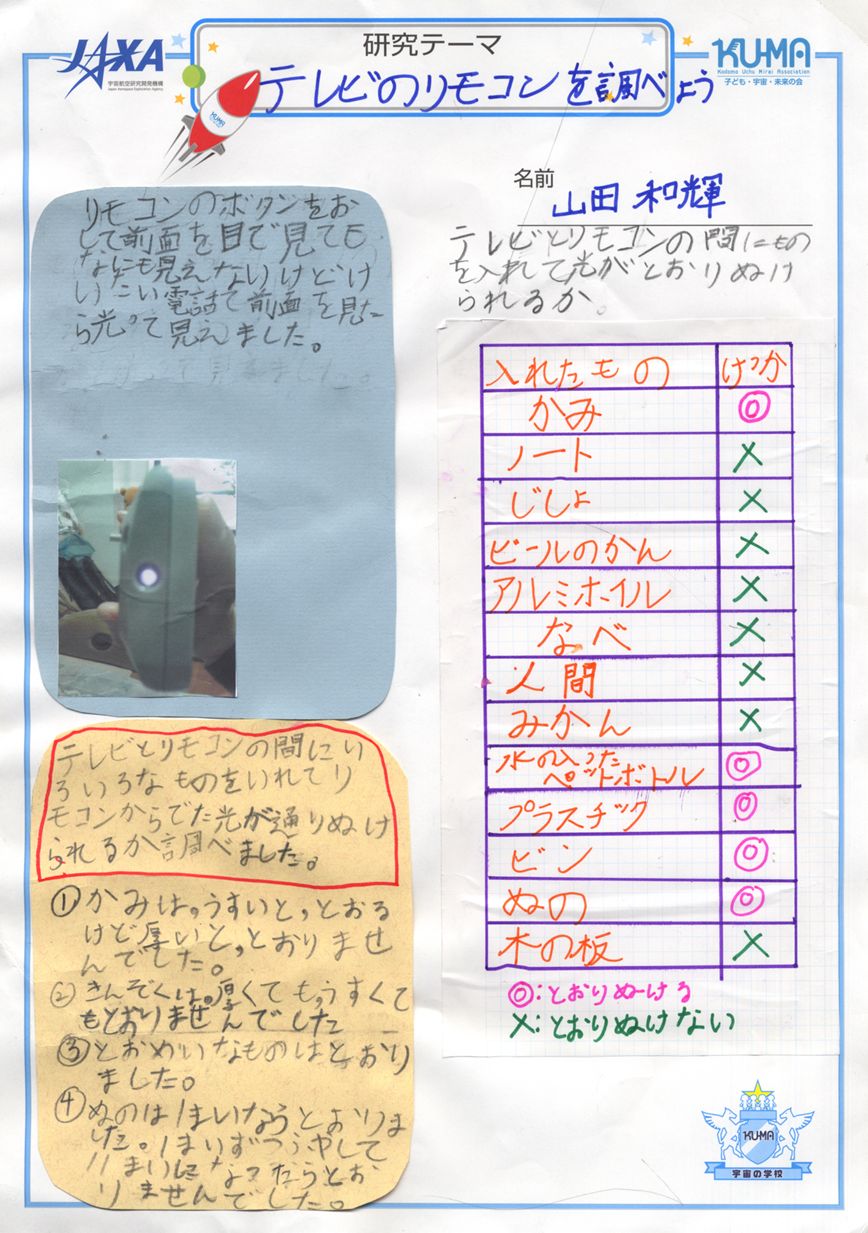 JAXA
宇宙航空研究開発機構
Japan Aerospace Exploration Agency
研究テーマ
テレビのリモコンを調べよう
KU-MA
Kodomo Uchu Mirai Association
子ども・宇宙・未来の会
KU-MA
名前
山田 和輝
リモコンのボタンをお
して前面を目で見ても
なにも見えないけどけ
いたい電話で前面を見た
ら光って見えました。
テレビとリモコンの間にい
ろいろなものをいれてリ
モコンからでた光が通りぬけ
られるか調べました。
①かみは。うすいと、とおる
けど厚いと、とおりませ
んでした。
②きんぞくは。厚くてもうすくて
もとおりませんでした
③とおめいなものはとおり
ました。
④ぬのは1まいならとおりま
した。1まいずつふやして
11まいになったらとお
りませんでした。
テレビとリモコンの間にもの
を入れて光がとおりぬけ
られるか。
入れたもの けっか
かみ ◎
ノート ×
じしょ ×
ビールのかん ×
アルミホイル ×
なべ ×
人間 ×
みかん ×
水の入った
ペットボトル ◎
プラスチック ◎
ビン ◎
ぬの ◎
木の板 ×
◎:とおりぬける
×:とおりぬけない
KU-MA
宇宙の学校